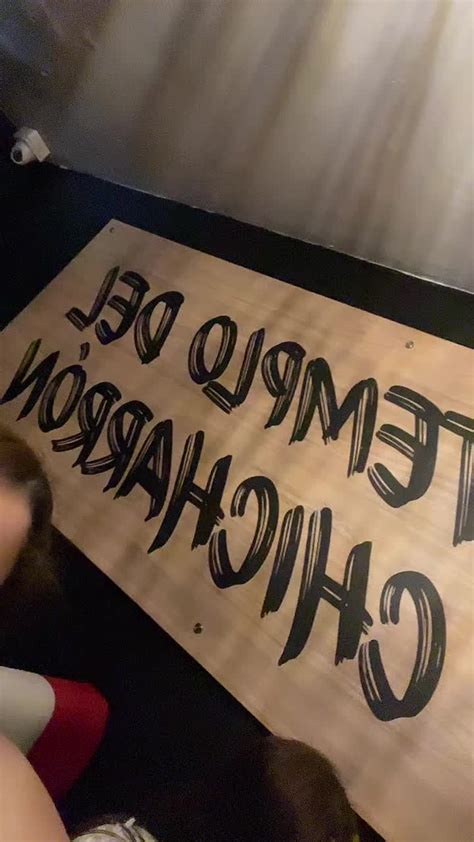 TEMPLO DEL
CHICHARRÓN